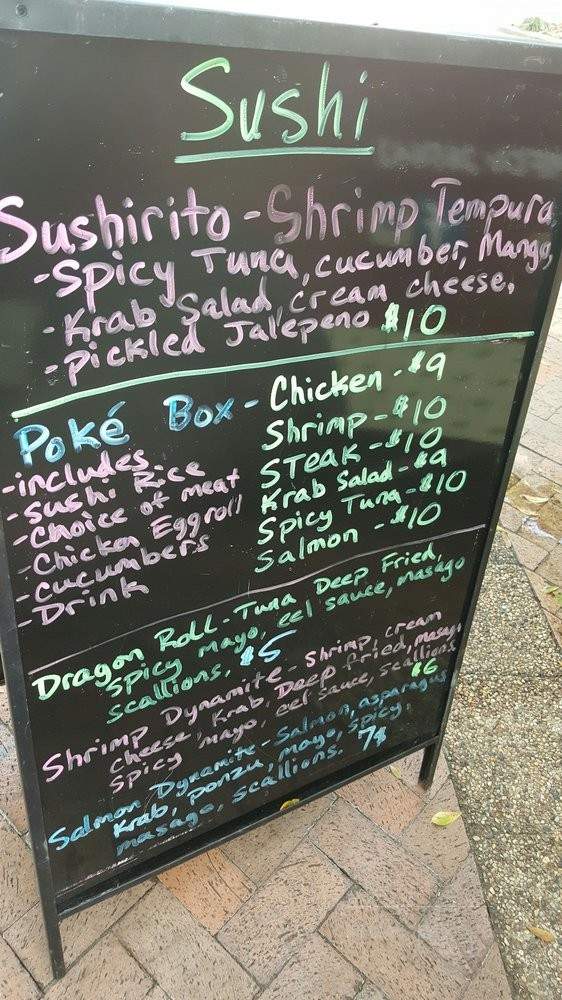 Sushi
Sushirito - Shrimp Tempura,
- Spicy Tuna, cucumber, Mango,
- Krab Salad, cream cheese,
- Pickled Jalepeno $10
Poké Box -
- includes
- Sushi Rice
- Choice of meat
- Chicken Eggroll
- cucumbers
- Drink
Chicken - $9
Shrimp - $10
STeaK - $10
Krab Salad - $9
Spicy Tuna - $10
Salmon - $10
Dragon Roll - Tuna Deep Fried,
Spicy mayo, eel sauce, masago
scallions. $5
Shrimp Dynamite - Shrimp, cream
cheese, Krab, Deep fried, masago
Spicy mayo, eel sauce, scallions $6
Salmon Dynamite - Salmon, asparagus
Krab, ponzu, mayo, Spicy,
masago, scallions. 7$